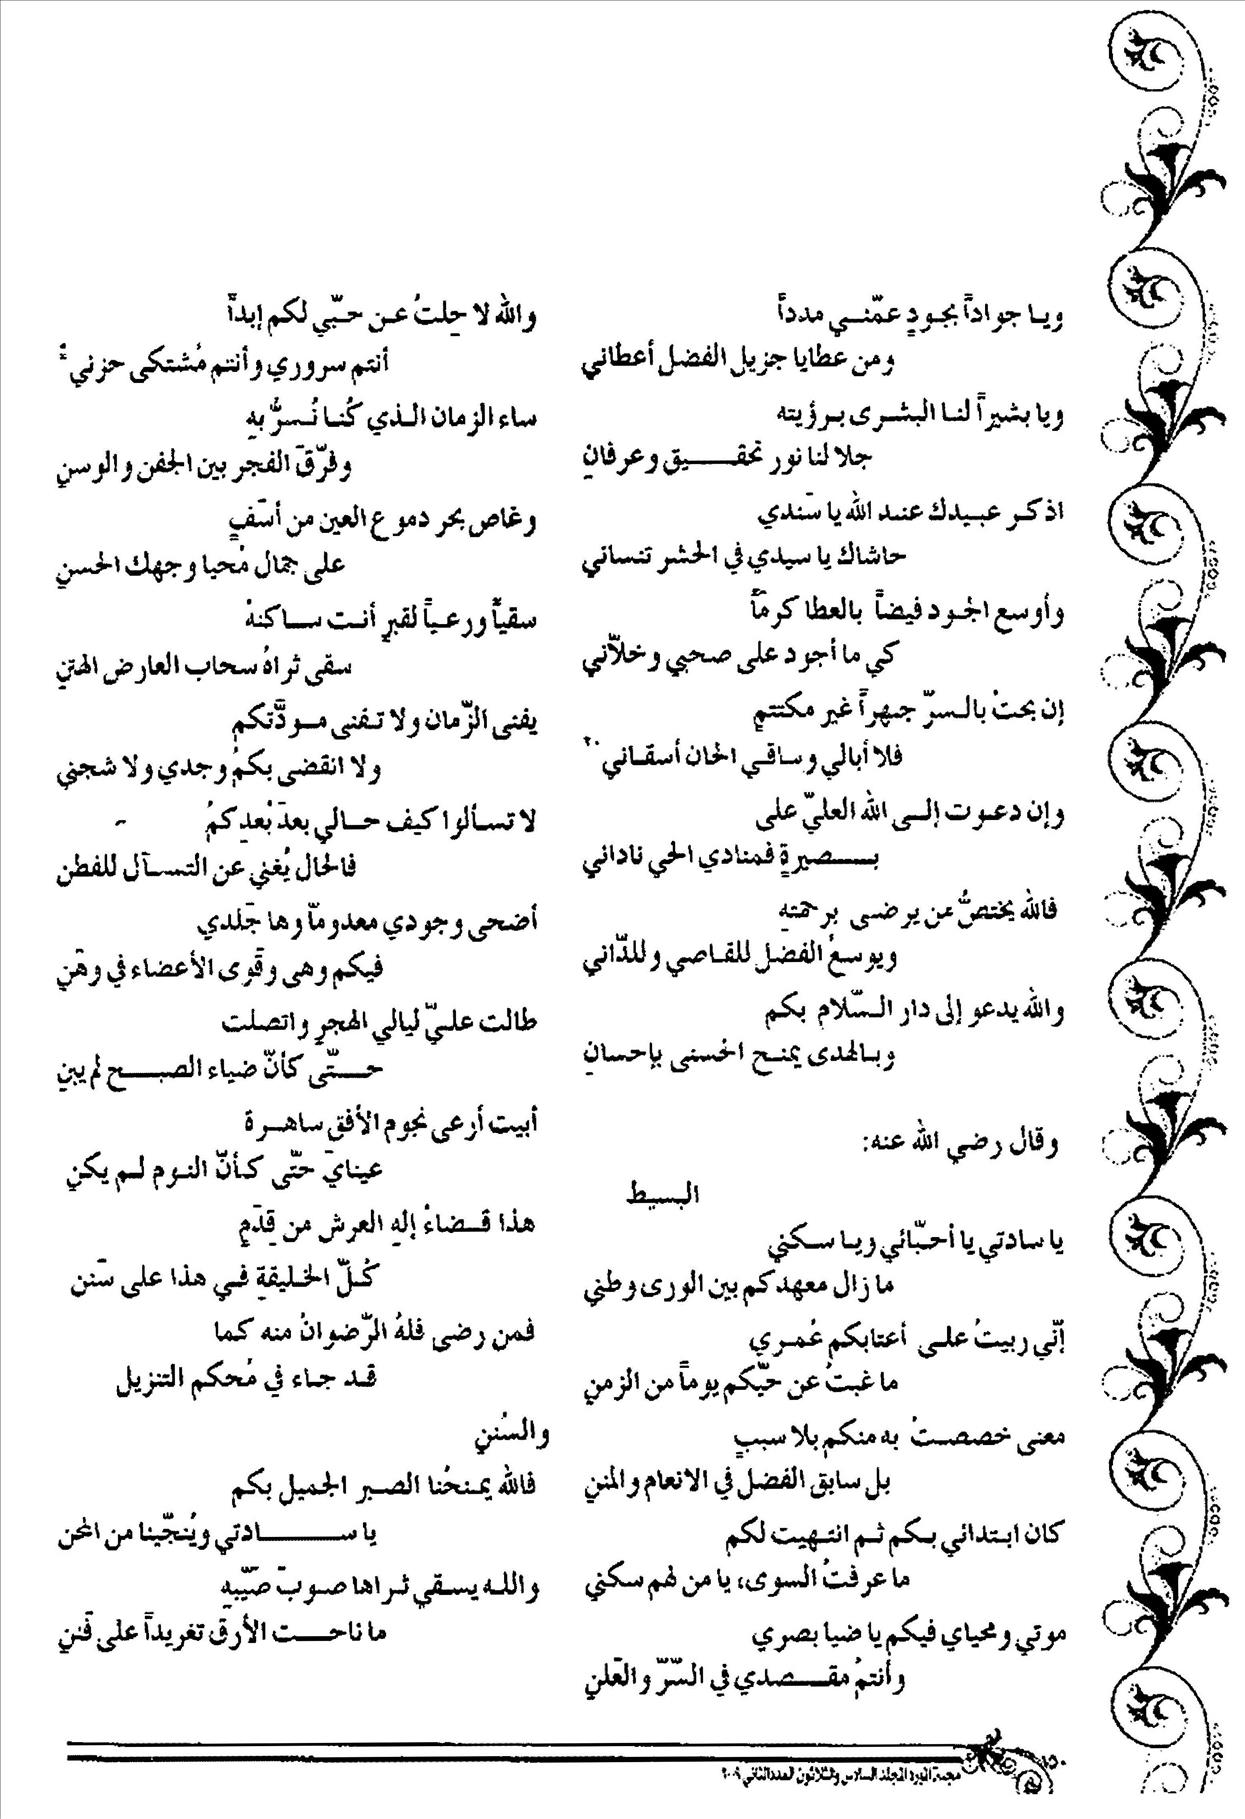 ويا جواداً بجودٍ عمّني مدداً
ومن عطايا جزيل الفضل أعطاني
ويا بشيراً لنا البشرى برؤيته
جلا لنا نور تحقيق وعرفانِ
اذكر عبيدك عند الله يا سَندي
حاشاك يا سيدي في الحشر تنساني
وأوسع الجود فيضاً بالعطا كرماً
كي ما أجود على صحبي وخلّاني
إن بحتْ بالسرّ جهراً غير مكتتمٍ
فلا أبالي وساقي الحان أسقاني ٢٠
وإن دعوت إلى الله العليّ على
بصيرةٍ فمنادي الحي ناداني
فالله يختصُّ عن يرضى برحمتهِ
ويوسعُ الفضل للقاصي وللدّاني
والله يدعو إلى دار السّلام بكم
وبالهدى يمنح الحُسنى بإحسانِ
وقال رضي الله عنه:
البسيط
يا سادتي يا أحبّائي ويا سكني
ما زال معهدكم بين الورى وطني
إنّي ربيتُ على أعتابكم عُمري
ما غبتُ عن حيّكم يوماً من الزمنِ
معنى خصصتُ به منكم بلا سببٍ
بل سابق الفضل في الانعام والمننِ
كان ابتدائي بكم ثم انتهيت لكم
ما عرفتُ السوى، يا من لهم سكني
موتي ومحياي فيكم يا ضيا بصري
وأنتمُ مقصدي في السّرّ والعَلنِ
والله لا حِلتُ عن حبّي لكم إبداً
أنتم سروري وأنتم مُشتكى حزني
ساء الزمان الذي كُنا نُسرُّ بهِ
وفرّقَ الفجر بين الجفن والوسنِ
وغاص بحر دموع العين من أسَفٍ
على جمال مُحيا وجهك الحسنِ
سقياً ورعياً لقبرٍ أنت ساكنهْ
سقى ثراهُ سحاب العارض الهتنِ
يفنى الزّمان ولا تفنى مودَّتكم
ولا انقضى بكمُ وجدي ولا شجني
لا تسألوا كيف حالي بعدَ بُعدِكمُ
فالحال يُغني عن التسآل للفطن
أضحى وجودي معدوماً وها جَلدي
فيكم وهى وقَوى الأعضاء في وهَنِ
طالت عليّ ليالي الهجرِ واتصلت
حتّى كأنّ ضياء الصبح لم يبنِ
أبيت أرعى نجوم الأفق ساهرة
عينايَ حتّى كأنّ النوم لم يكنِ
هذا قضاءُ إلهِ العرش من قِدَمٍ
كُلّ الخليقةِ في هذا على سَنن
فمن رضى فلهُ الرّضوانُ منه كما
قد جاء في مُحكم التنزيل
والسُننِ
فالله يمنحُنا الصبر الجميل بكم
يا سادتي ويُنجّينا من المحن
والله يسقي ثراها صوبَ صَيّبهِ
ما ناحت الأرق تغريداً على فَننِ
١٥٠
مجلة المورد المجلد السادس والثلاثون العدد الثاني ٢٠٠٩